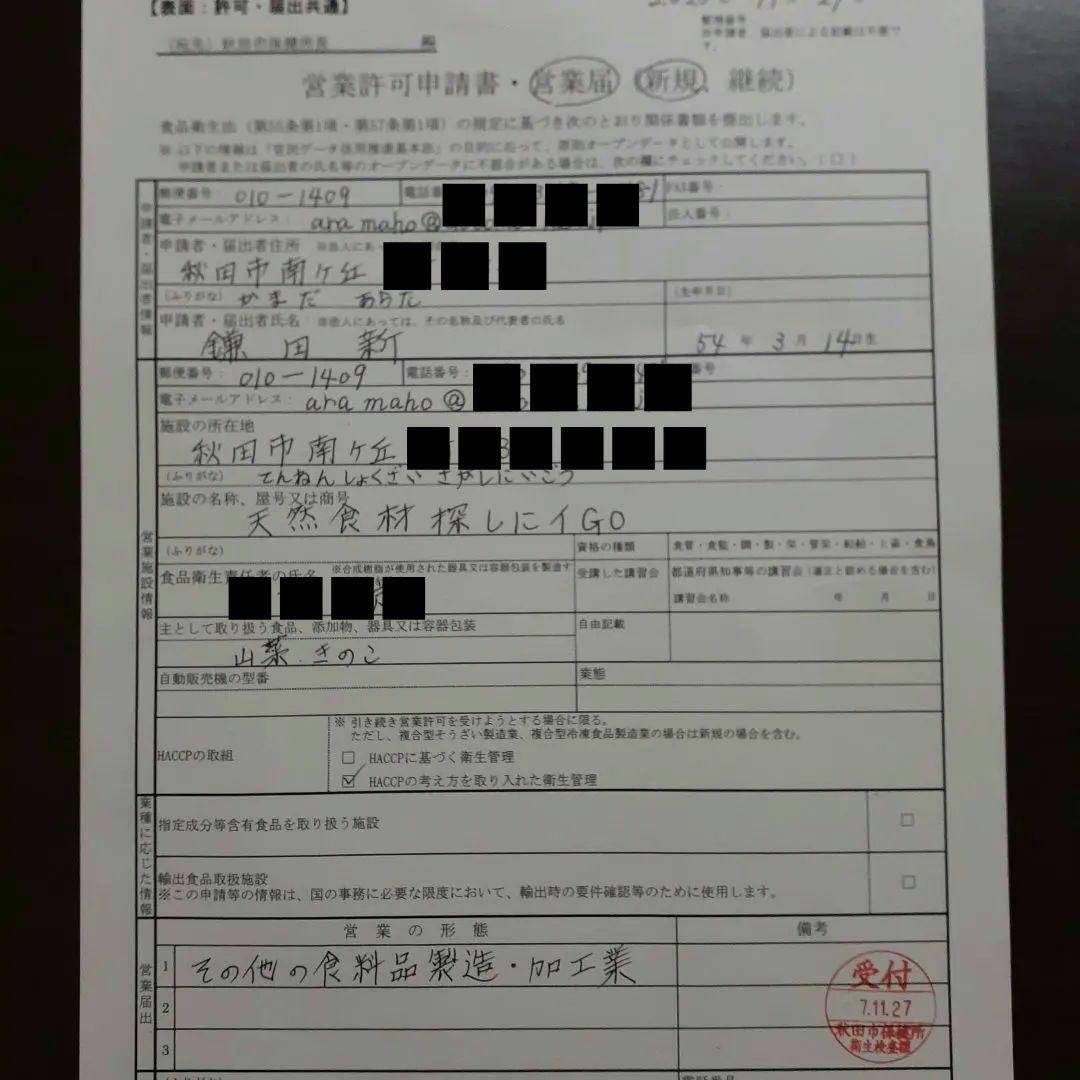 【表面：許可・届出共通】
整理番号
※申請者、届出者による記載は不要です。
（宛先）秋田市保健所長 殿
営業許可申請書・営業届（新規、継続）
食品衛生法（第55条第1項・第57条第1項）の規定に基づき次のとおり関係書類を提出します。
※ 以下の情報は「官民データ活用推進基本法」の目的に沿って、原則オープンデータとして公開します。
申請者または届出者の氏名等のオープンデータに不都合がある場合は、次の欄にチェックしてください。（□）
申請者・届出者情報
郵便番号： 010-1409
FAX番号：
電子メールアドレス： ara maho@
法人番号：
申請者・届出者住所
秋田市南ヶ丘
（ふりがな） かまだ あらた
（生年月日）
申請者・届出者氏名 ※法人にあっては、その名称及び代表者の氏名
鎌田 新
54 年 3 月 14日生
営業施設情報
郵便番号： 010-1409 電話番号：
電子メールアドレス： ara maho@
施設の所在地
秋田市南ヶ丘
（ふりがな） てんねんしょくざい さがしにいごう
施設の名称、屋号又は商号
天然食材探しにイGO
（ふりがな）
資格の種類 食管・食監・調・製・栄・管栄・船舶・と畜・食鳥
食品衛生責任者の氏名 ※合成樹脂が使用された器具又は容器包装を製造す
受講した講習会 都道府県知事等の講習会（適正と認める場合を含む）
講習会名称 年 月 日
主として取り扱う食品、添加物、器具又は容器包装
自由記載
山菜．きのこ
自動販売機の型番
業態
HACCPの取組
※ 引き続き営業許可を受けようとする場合に限る。
ただし、複合型そうざい製造業、複合型冷凍食品製造業の場合は新規の場合を含む。
□ HACCPに基づく衛生管理
☑ HACCPの考え方を取り入れた衛生管理
業種に応じた情報
指定成分等含有食品を取り扱う施設 □
輸出食品取扱施設
※この申請等の情報は、国の事務に必要な限度において、輸出時の要件確認等のために使用します。 □
営業届出
営業の形態 備考
1 その他の食料品製造・加工業
2
3
受付
7.11.27
秋田市保健所
衛生検査課
（ふりがな）
電話番号